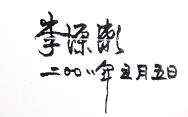 李源彭
二〇〇八年五月五日